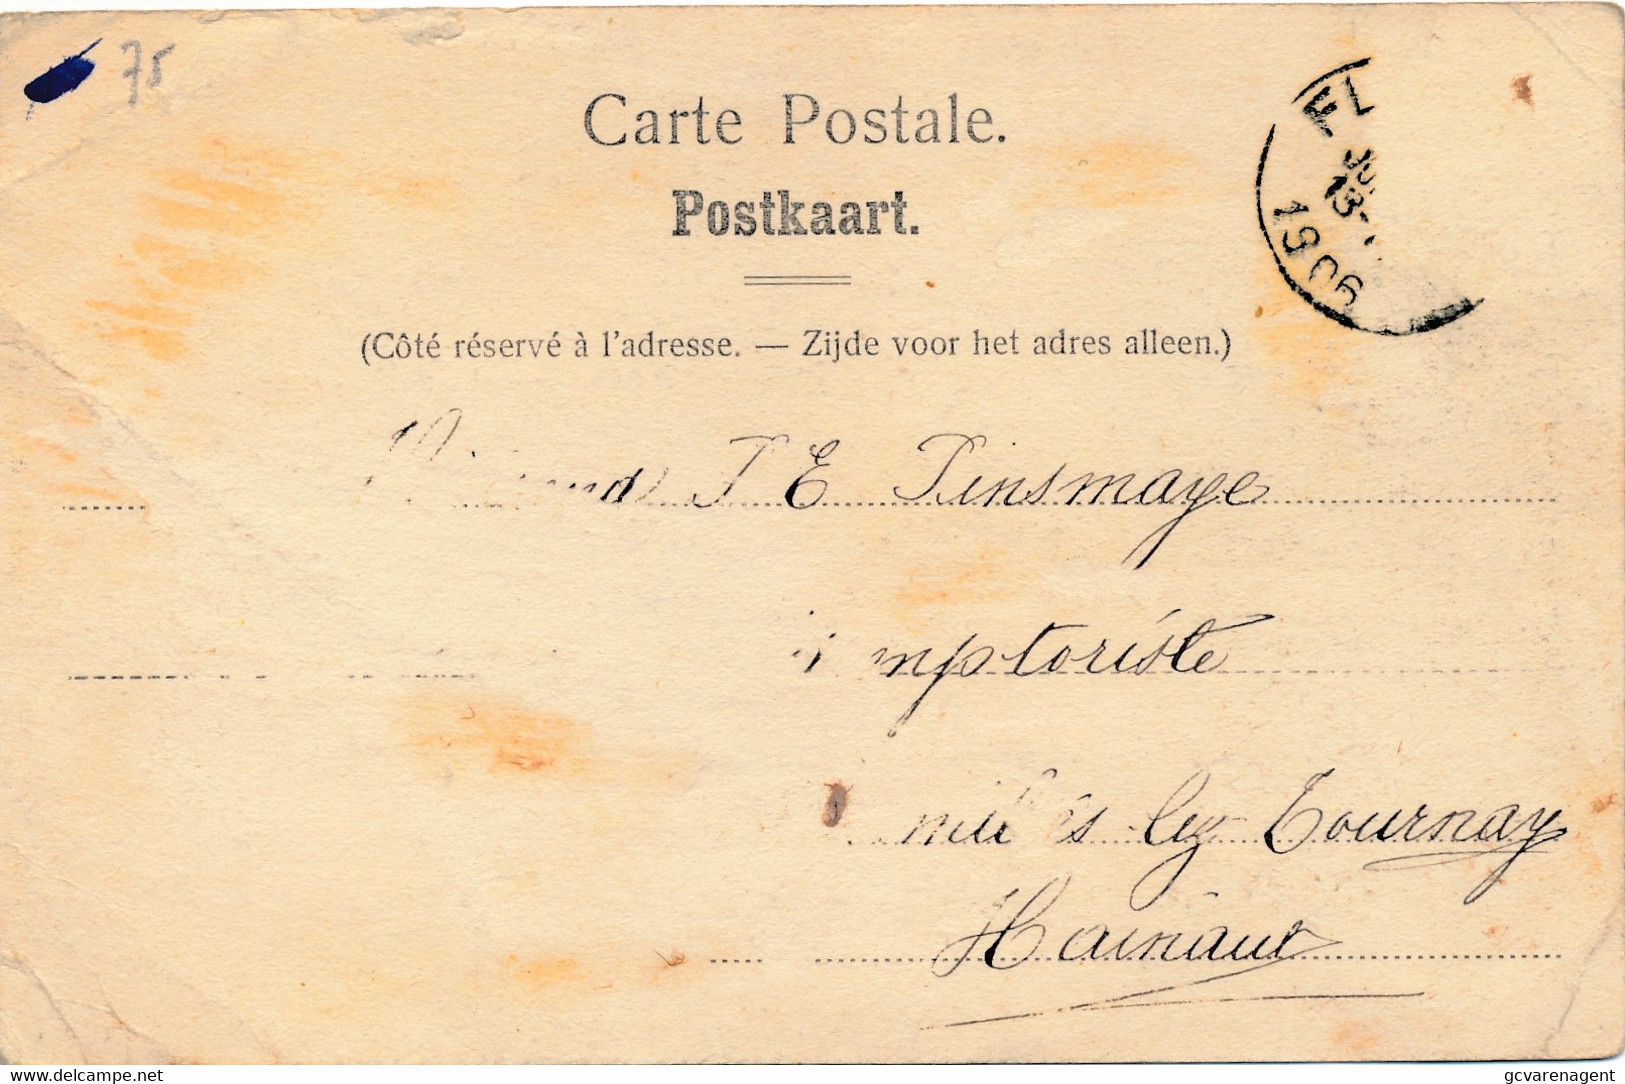 75
Carte Postale.
Postkaart.
(Côté réservé à l'adresse. — Zijde voor het adres alleen.)
FL
13
1906
P E Pinsmaye
mptoriste
lez Tournay
Hainaut
delcampe.net
gcvarenagent